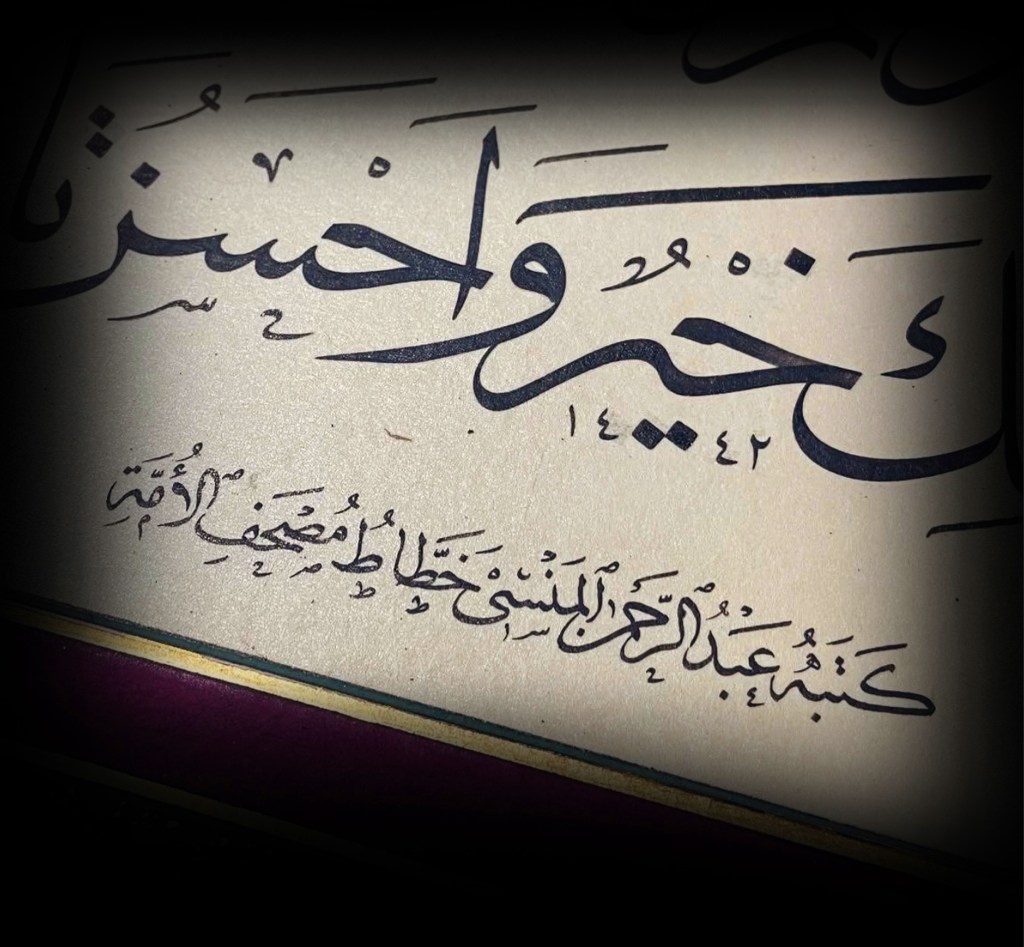 خَيْرٌ وَأَحْسَنُ
١٤٤٢
كَتَبَهُ عَبْدُ الرَّحْمٰنِ المَنْسِىْ خَطَّاطُ مُصْحَفِ الأُمَّةِ